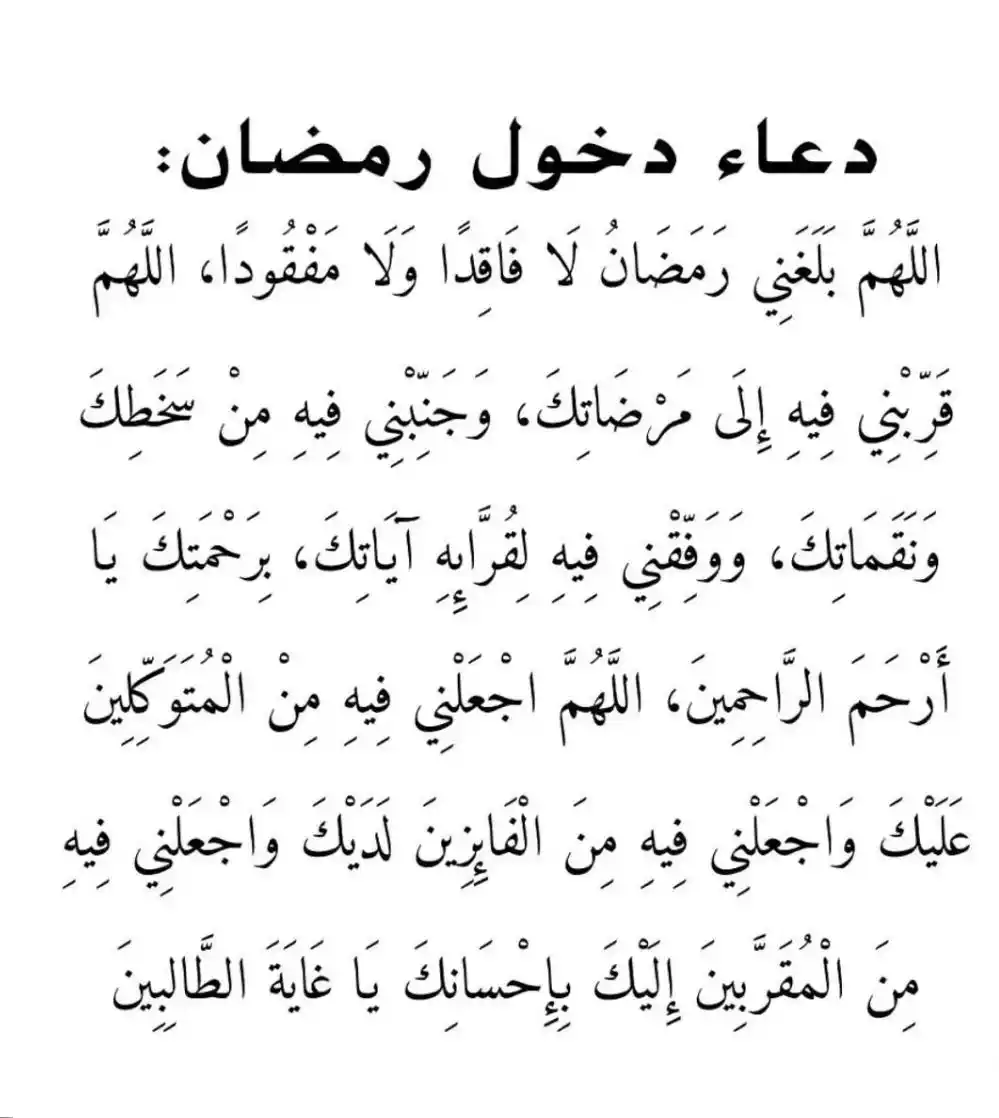 دعاء دخول رمضان:
اللَّهُمَّ بَلَغَنِي رَمَضَانُ لَا فَاقِدًا وَلَا مَفْقُودًا، اللَّهُمَّ
قَرِّبْنِي فِيهِ إِلَى مَرْضَاتِكَ، وَجَنِّبْنِي فِيهِ مِنْ سَخَطِكَ
وَنَقَمَاتِكَ، وَوَفِّقْنِي فِيهِ لِقُرَّائِهِ آيَاتِكَ، بِرَحْمَتِكَ يَا
أَرْحَمَ الرَّاحِمِينَ، اللَّهُمَّ اجْعَلْنِي فِيهِ مِنْ الْمُتَوَكِّلِينَ
عَلَيْكَ وَاجْعَلْنِي فِيهِ مِنَ الْفَائِزِينَ لَدَيْكَ وَاجْعَلْنِي فِيهِ
مِنَ الْمُقَرَّبِينَ إِلَيْكَ بِإِحْسَانِكَ يَا غَايَةَ الطَّالِبِينَ